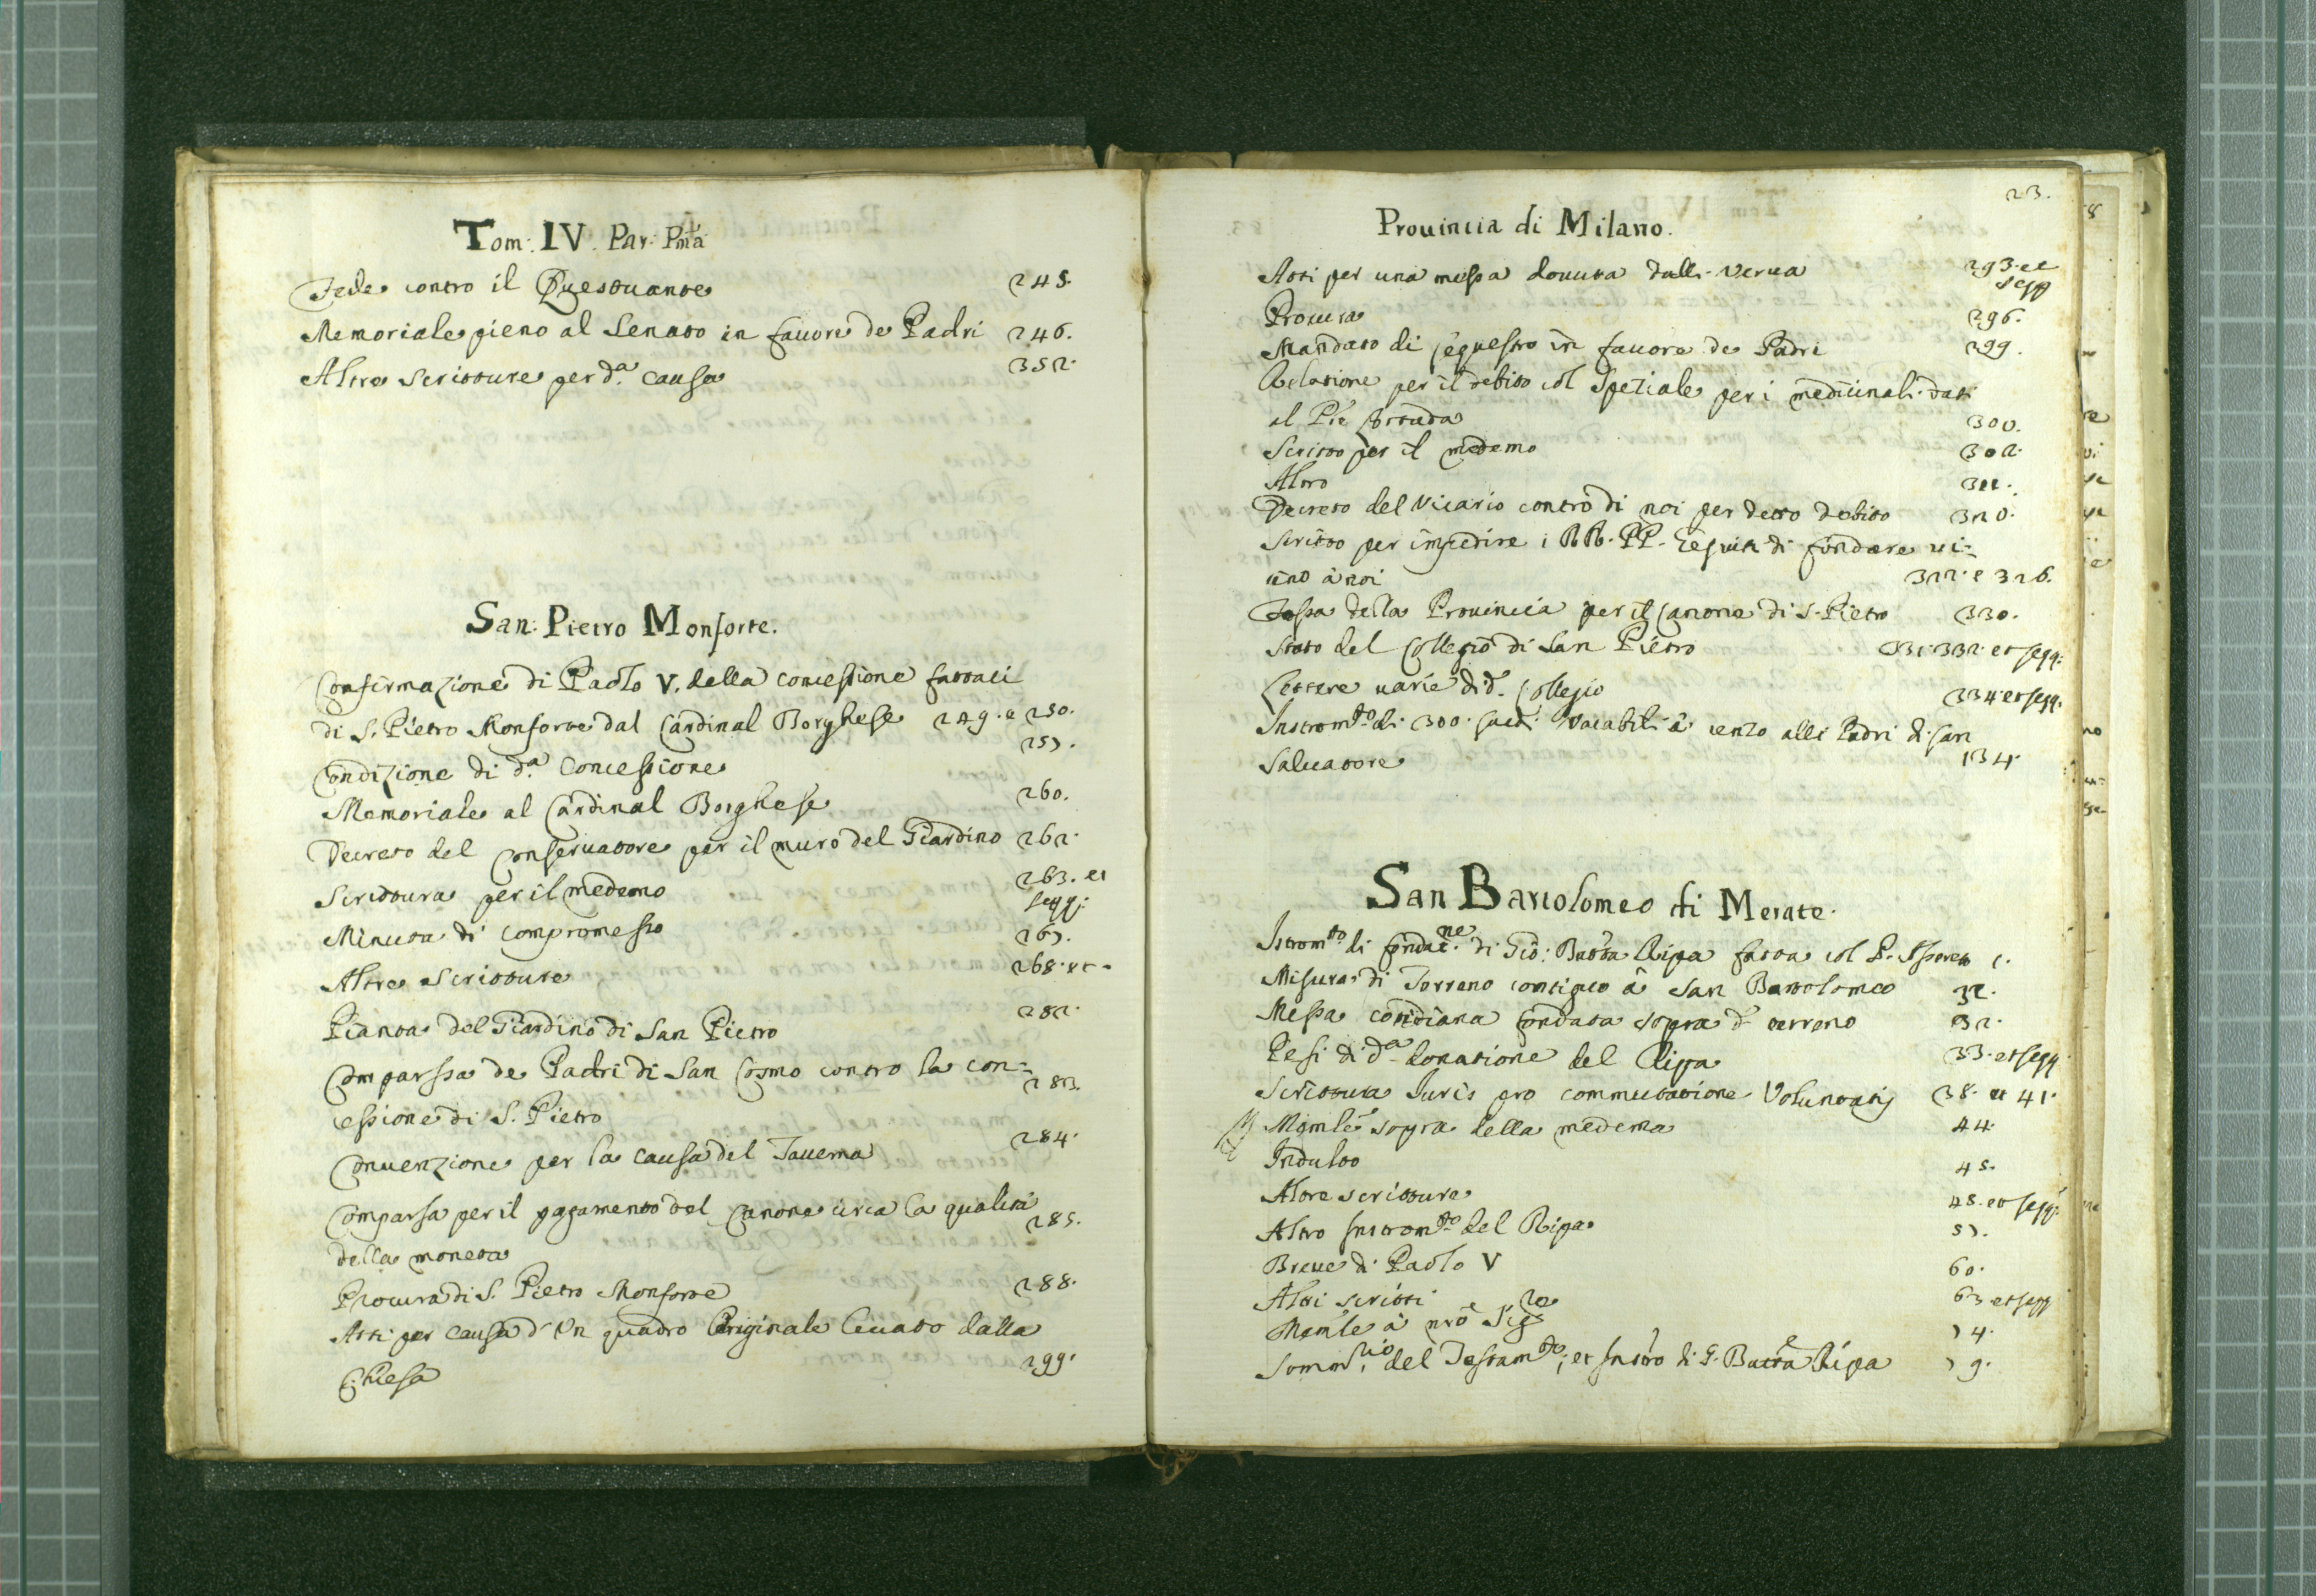 Tom: IV. Par: Pma
Fede contro il Questuante 245.
Memoriale pieno al Senato in fauore de Padri 246.
Altre scritture per d.a causa 352.
San: Pietro Monforte.
Confirmazione di Paolo V. della concessione fattaci
di S. Pietro Monforte dal Cardinal Borghese 249. e 250.
Condizione di d.a Concessione 257.
Memoriale al Cardinal Borghese 260.
Decreto del Conseruatore per il muro del Giardino 262.
Scrittura per il medemo 263. et segg:
Minuta di compromesso 267.
Altre scritture 268. et
Pianta del Giardino di San Pietro 282.
Comparssa de Padri di San Cosmo contro la con=
cessione di S. Pietro 283.
Conuenzione per la causa del Tauerna 284.
Comparsa per il pagamento del Canone circa la qualità
della moneta 285.
Procura di S. Pietro Monforte 288.
Atti per causa d'Un quadro Originale leuato dalla
Chiesa 299.
23.
Prouincia di Milano.
Atti per una messa douuta dalli Verua 293. et segg
Procura 296.
Mandato di sequestro in fauore de Padri 299.
Relatione per il debito col Speziale per i medicinali dati
al Pre 300.
Scritto per il medemo 302.
Altro 311.
Decreto del Vicario contro di noi per detto debito 320.
Scritto per impedire i RR. PP. Gesuiti di fondare ui=
cino à noi 322. e 326.
Tassa della Prouincia per il Canone di S. Pietro 330.
Stato del Collegio di San Pietro 331. 332. et segg.
Lettere varie di d. Collegio 334 et segg.
Instrom.to di 300. scudi Vacabili à censo alli Padri di San
Saluatore 134.
San Bartolomeo di Merate.
Istrom.to di fondaz.ne di Gio: Batta Ripa fatta col P. Assereto 1.
Misura di Terreno contiguo à San Bartolomeo 31.
Messa cotidiana fondata sopra d.o terreno 32.
Pesi di d.a donatione del Ripa 33. et segg
Scrittura Iuris pro commutatione Voluntatis 38. et 41.
Memle sopra della medema 44.
Indulto 45.
Altre scritture 48. et segg.
Altro Instrom.to del Ripa 57.
Breue di Paolo V 60.
Altri scritti 63 et segg
Memle à nro Sig.re 74.
Somm.rio del Testam.to, et Instro di G. Batta Ripa 79.